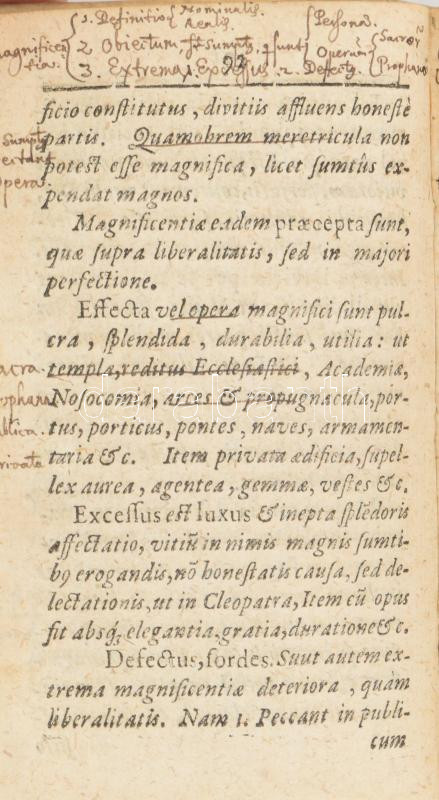 1. Definitio Nominalis. Realis.
Magnificentia
2 Obiectum, st Sumptq, qsunt Persona. Operum Sacrar
3. Extrema 1. Excessus. 2. Defectq. Prophana
93
ficio conſtitutus, divitiis affluens honeſtè
partis. Quamobrem meretricula non
poteſt eſſe magnifica, licet ſumtûs ex-
pendat magnos.
Magnificentiæ eadem præcepta ſunt,
quæ ſupra liberalitatis, ſed in majori
perfectione.
Effecta vel opera magnifici ſunt pul-
cra, ſplendida, durabilia, utilia: ut
templa, reditus Eccleſiaſtici, Academiæ,
Noſocomia, arces & propugnacula, por-
tus, porticus, pontes, naves, armamen-
taria &c. Item privata ædificia, ſupel-
lex aurea, agentea, gemmæ, veſtes &c.
Exceſſus eſt luxus & inepta ſplēdoris
affectatio, vitiū in nimis magnis ſumti-
bꝰ erogandis, nō honeſtatis cauſa, ſed de-
lectationis, ut in Cleopatra, Item cū opus
fit abſq́; elegantia, gratia, duratione &c.
Defectus, ſordes. Suut autem ex-
trema magnificentiæ deteriora, quàm
liberalitatis. Nam 1. Peccant in publi-
cum
Sumptq
opera
acra
prophana
blica
rivata